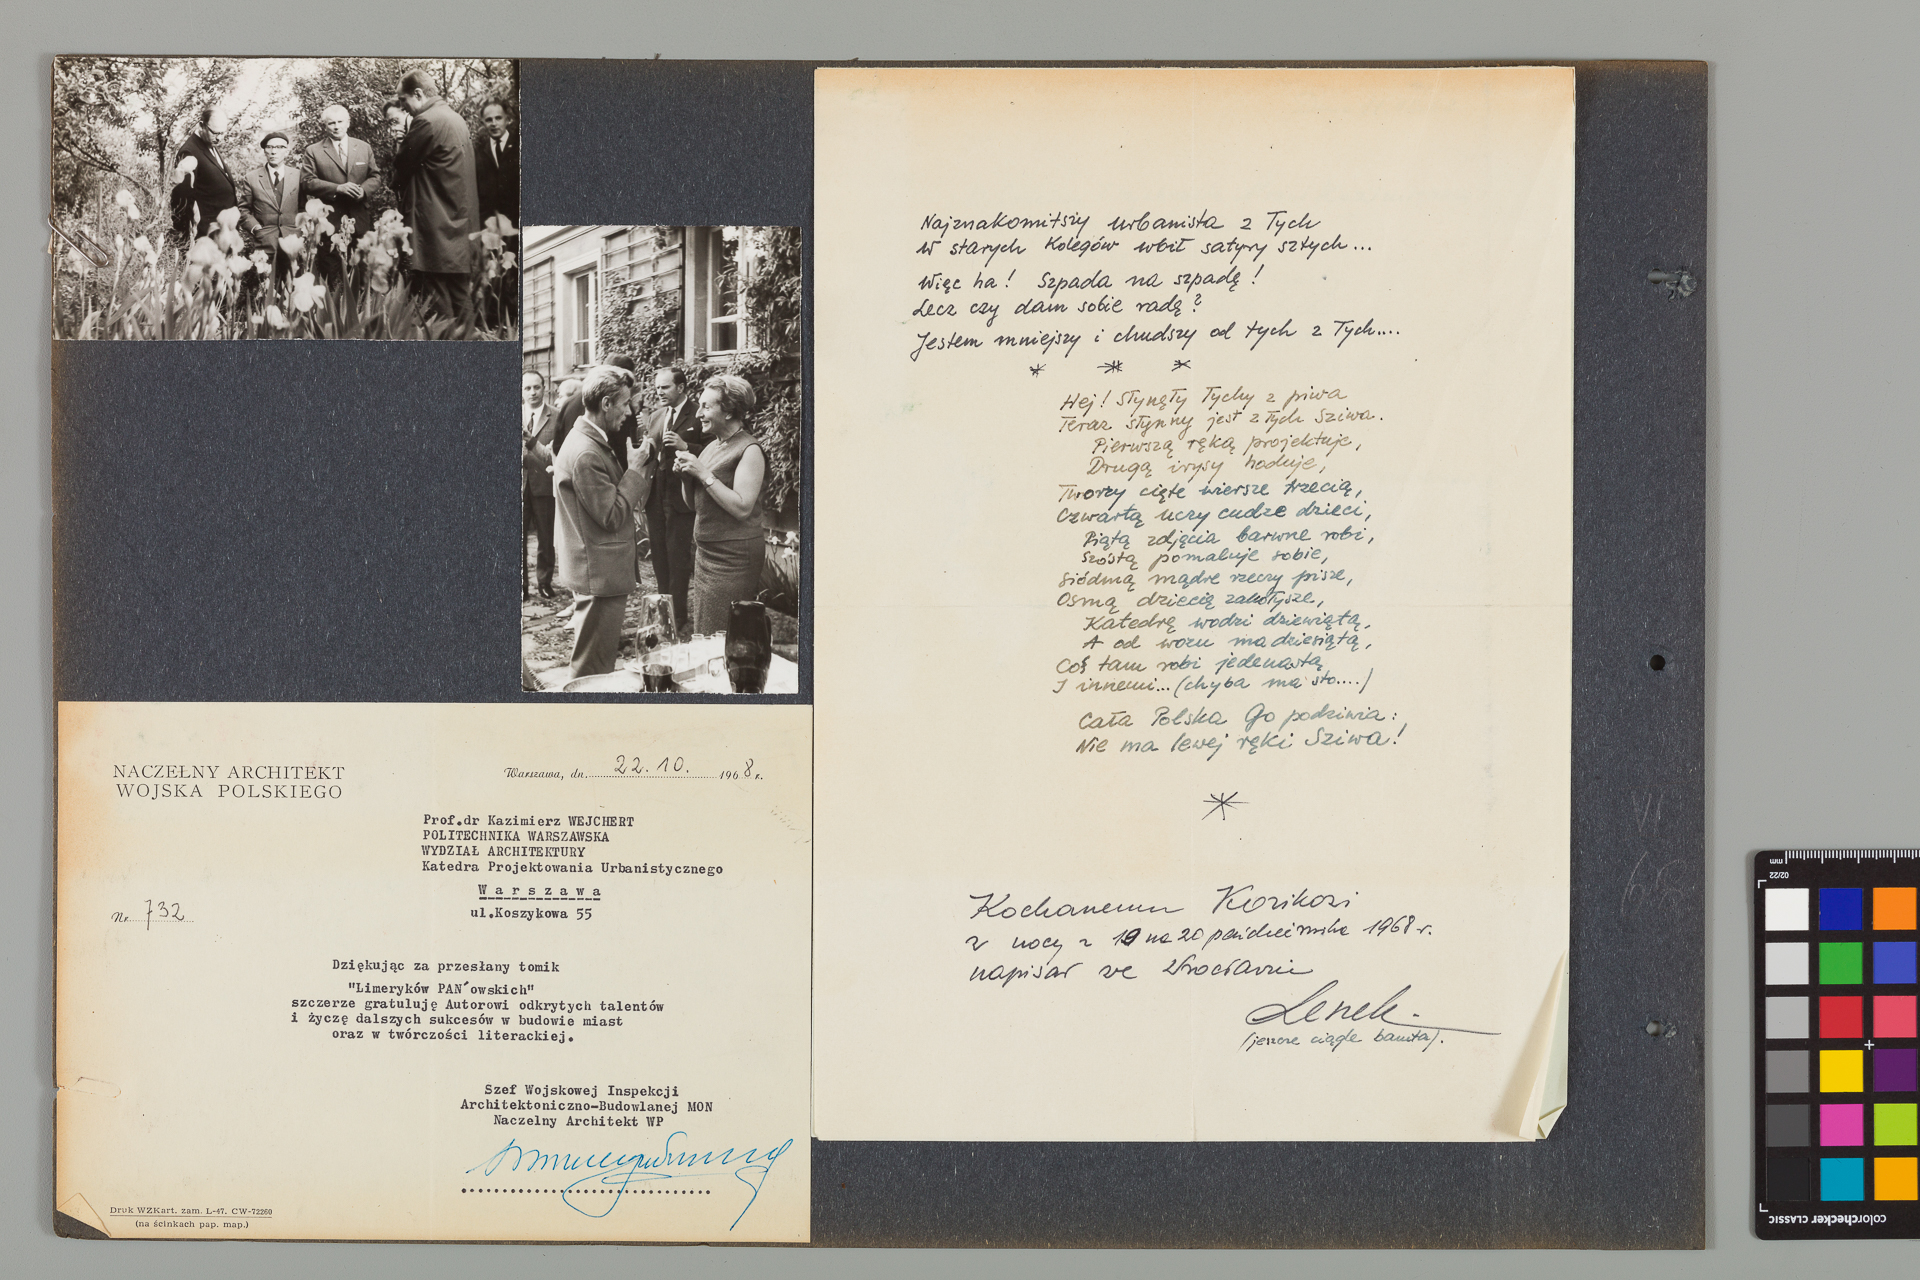 NACZEŁNY ARCHITEKT
WOJSKA POLSKIEGO
Warszawa, dn. 22.10. 1968 r.
Prof.dr Kazimierz WEJCHERT
POLITECHNIKA WARSZAWSKA
WYDZIAŁ ARCHITEKTURY
Katedra Projektowania Urbanistycznego
Warszawa
ul.Koszykowa 55
Nr 732
Dziękując za przesłany tomik
"Limeryków PAN´owskich"
szczerze gratuluję Autorowi odkrytych talentów
i życzę dalszych sukcesów w budowie miast
oraz w twórczości literackiej.
Szef Wojskowej Inspekcji
Architektoniczno-Budowlanej MON
Naczelny Architekt WP
Druk WZKart. zam. L-47. CW-72260
(na ścinkach pap. map.)
Najznakomitszy urbanista z Tych
W starych Kolegów wbił satyry sztych...
Więc ha! Szpada na szpadę!
Lecz czy dam sobie radę?
Jestem mniejszy i chudszy od tych z Tych....
* * *
Hej! Słynęły Tychy z piwa
Teraz słynny jest z Tych Sziwa.
Pierwszą ręką projektuje,
Drugą irysy hoduje,
Tworzy cięte wiersze trzecią,
Czwartą uczy cudze dzieci,
Piątą zdjęcia barwne robi,
Szóstą pomaluje sobie,
Siódmą mądre rzeczy pisze,
Ósmą dziecię zakołysze,
Katedrę wodzi dziewiątą,
A od wozu ma dziesiątą,
Coś tam robi jedenastą
I innemi... (chyba ma sto....)
Cała Polska Go podziwia:
Nie ma lewej ręki Sziwa!
*
Kochanemu Kozikozi
w nocy z 19 na 20 października 1968 r.
napisał we Wrocławiu
Lenek.
(jeszcze ciągle banita).
VI
mm
02/22
colorchecker CLASSIC